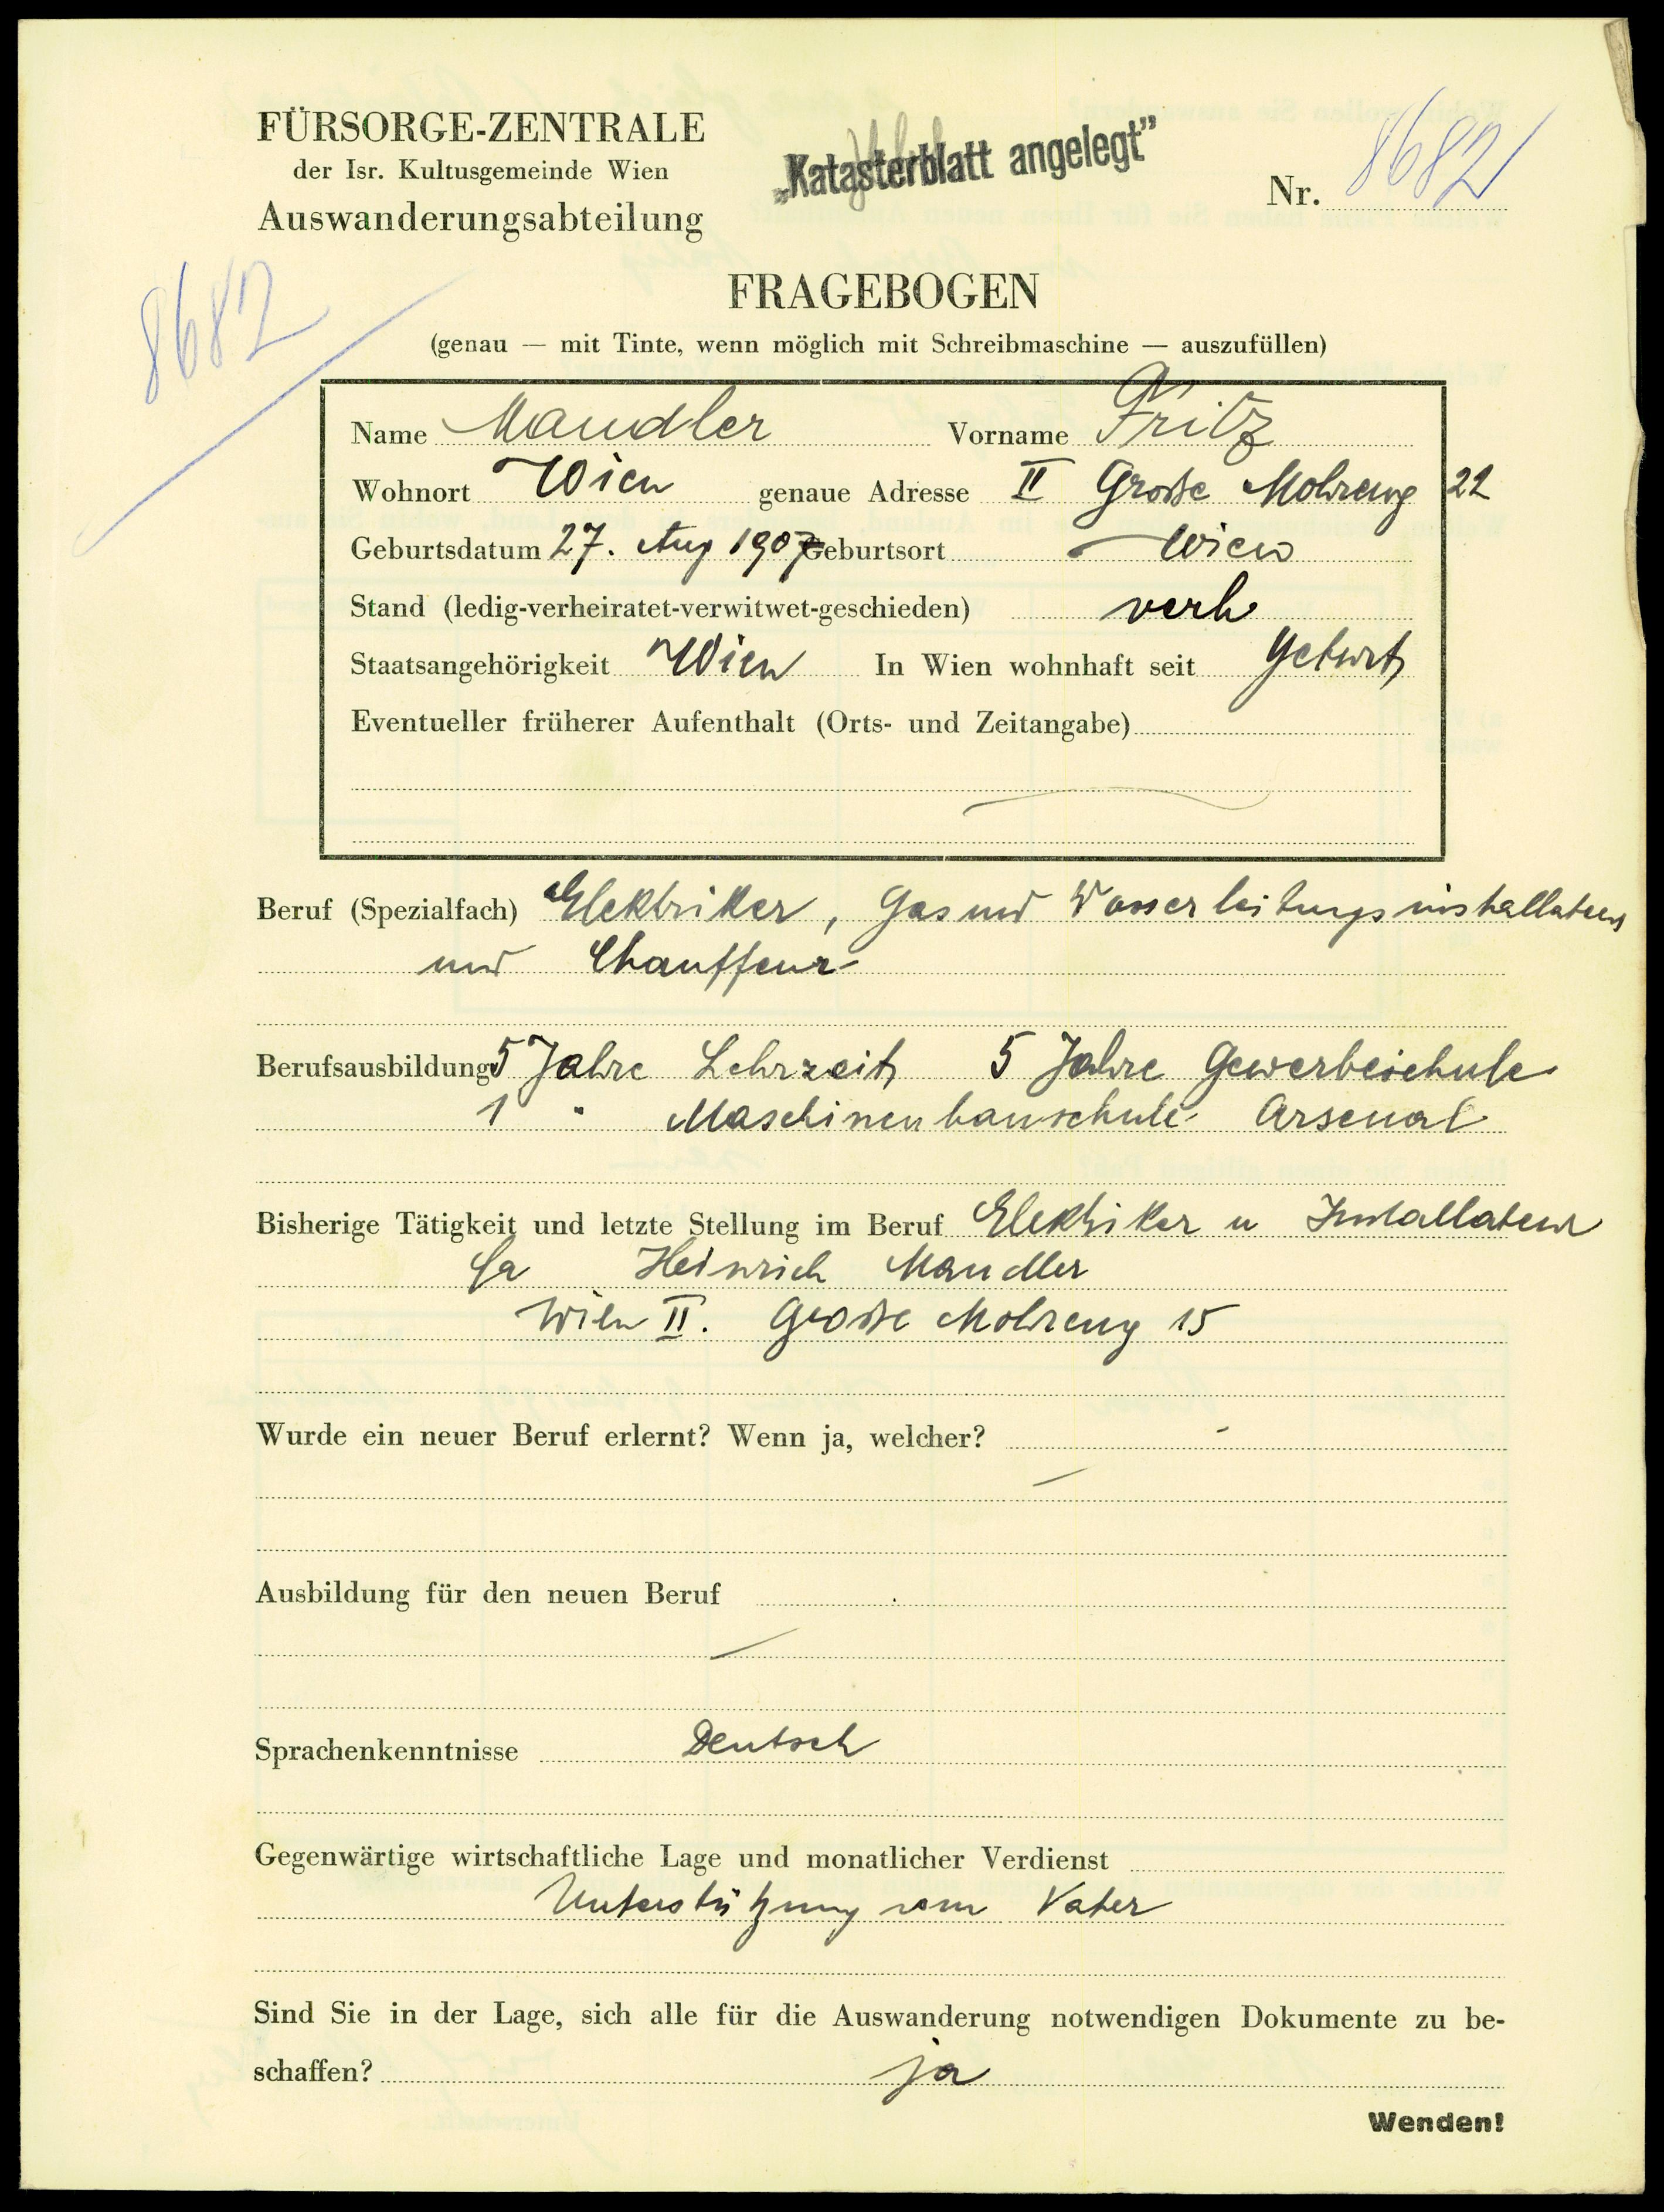 FÜRSORGE-ZENTRALE
der Isr. Kultusgemeinde Wien
Auswanderungsabteilung
„Katasterblatt angelegt”
Nr. 8682
8682
FRAGEBOGEN
(genau — mit Tinte, wenn möglich mit Schreibmaschine — auszufüllen)
Name Mandler Vorname Fritz
Wohnort Wien genaue Adresse II Große Mohreng 22
Geburtsdatum 27. Aug 1907 Geburtsort Wien
Stand (ledig-verheiratet-verwitwet-geschieden) verh
Staatsangehörigkeit Wien In Wien wohnhaft seit Geburt
Eventueller früherer Aufenthalt (Orts- und Zeitangabe)
Beruf (Spezialfach) Elektriker, Gas und Wasserleitungsinstallateur
und Chauffeur
Berufsausbildung 5 Jahre Lehrzeit 5 Jahre Gewerbeschule
1 " Maschinenbauschule Arsenal
Bisherige Tätigkeit und letzte Stellung im Beruf Elektriker u Installateur
Fa Heinrich Mandler
Wien II. Große Mohreng 15
Wurde ein neuer Beruf erlernt? Wenn ja, welcher? -
Ausbildung für den neuen Beruf
Sprachenkenntnisse Deutsch
Gegenwärtige wirtschaftliche Lage und monatlicher Verdienst
Unterstützung vom Vater
Sind Sie in der Lage, sich alle für die Auswanderung notwendigen Dokumente zu be-
schaffen? ja
Wenden!